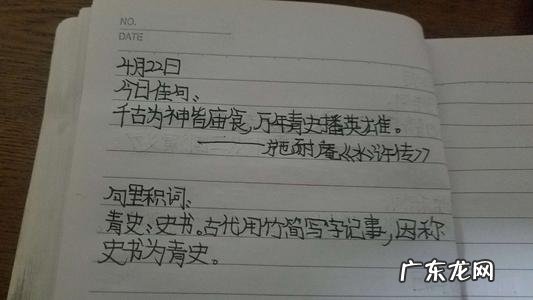 NO.
DATE
4月22日
今日佳句:
千古为神皆庙食,万年青史播英雄。
——施耐庵《水浒传》
句里积词:
青史:史书。古代用竹简写字记事,因称
史书为青史。
广东龙网